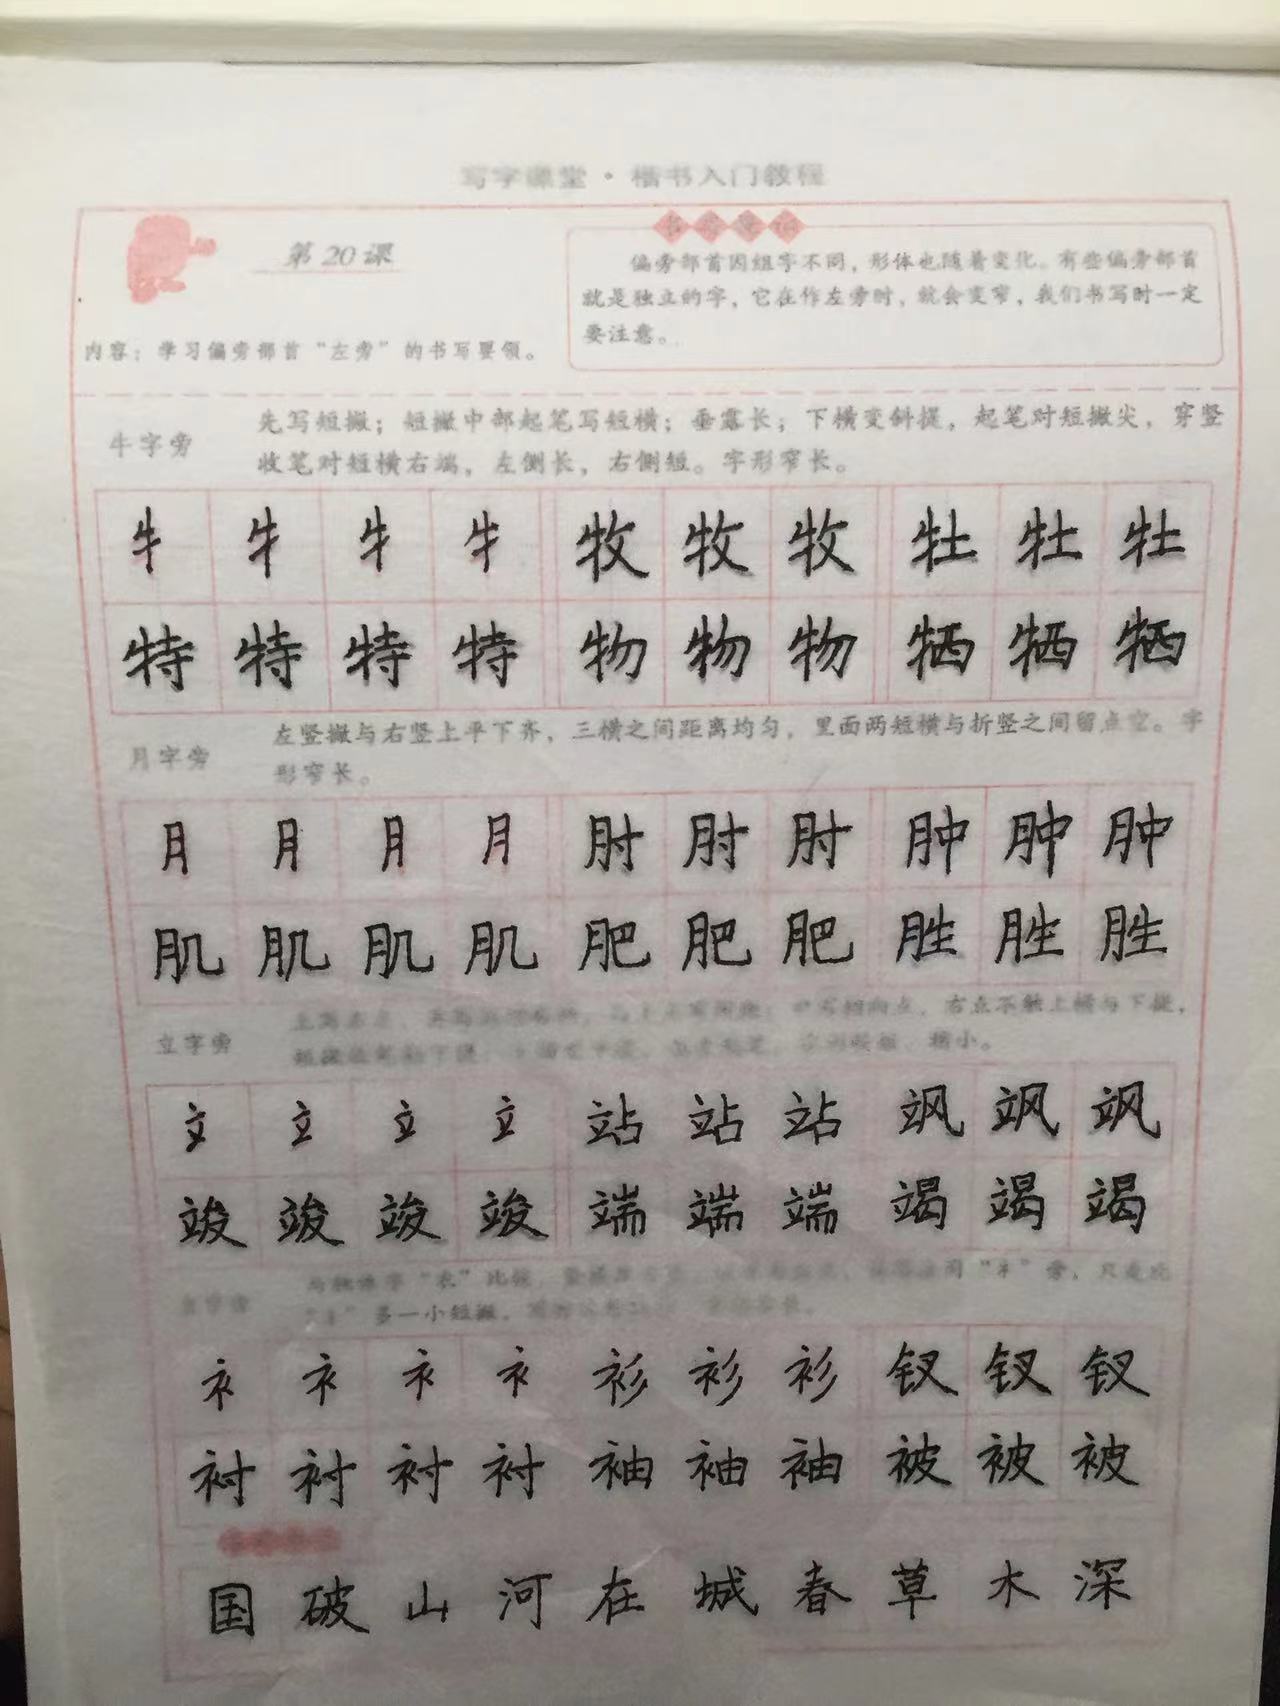 写字课堂·楷书入门教程
第20课
偏旁部首因组字不同，形体也随着变化。有些偏旁部首
就是独立的字，它在作左旁时，就会变窄，我们书写时一定
要注意。
内容：学习偏旁部首“左旁”的书写要领。
牛字旁
先写短撇；短撇中部起笔写短横；垂露长；下横变斜提，起笔对短撇尖，穿竖
收笔对短横右端，左侧长，右侧短。字形窄长。
牜 牜 牜 牜 牧 牧 牧 牡 牡 牡
特 特 特 特 物 物 物 牺 牺 牺
月字旁
左竖撇与右竖上平下齐，三横之间距离均匀，里面两短横与折竖之间留点空。字
形窄长。
月 月 月 月 肘 肘 肘 肿 肿 肿
肌 肌 肌 肌 肥 肥 肥 胜 胜 胜
立字旁
右点不触上横与下提，
稍小。
立 立 立 立 站 站 站 飒 飒 飒
竣 竣 竣 竣 端 端 端 竭 竭 竭
“衣”比较，
同“礻”旁，只是比
多一小短撇，
衤 衤 衤 衤 衫 衫 衫 钗 钗 钗
衬 衬 衬 衬 袖 袖 袖 被 被 被
国 破 山 河 在 城 春 草 木 深